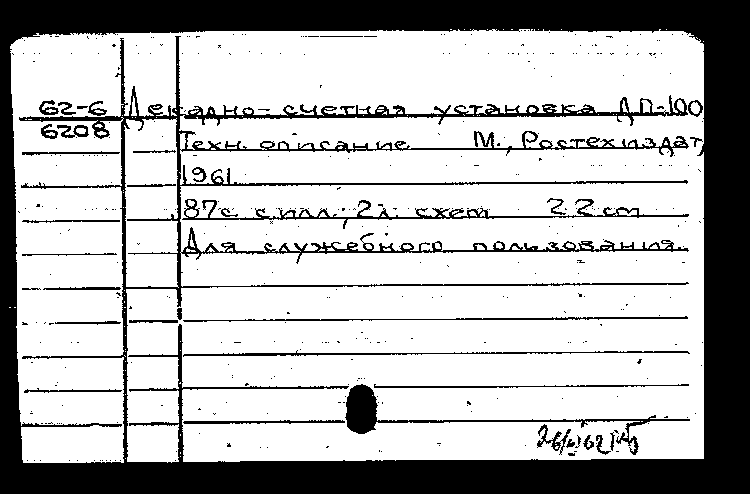 62-6 Декадно-счетная установка ДП-100
6208
Техн. описание М., Ростехиздат,
1961.
87с. с илл.; 2л. схем 22 см
Для служебного пользования.